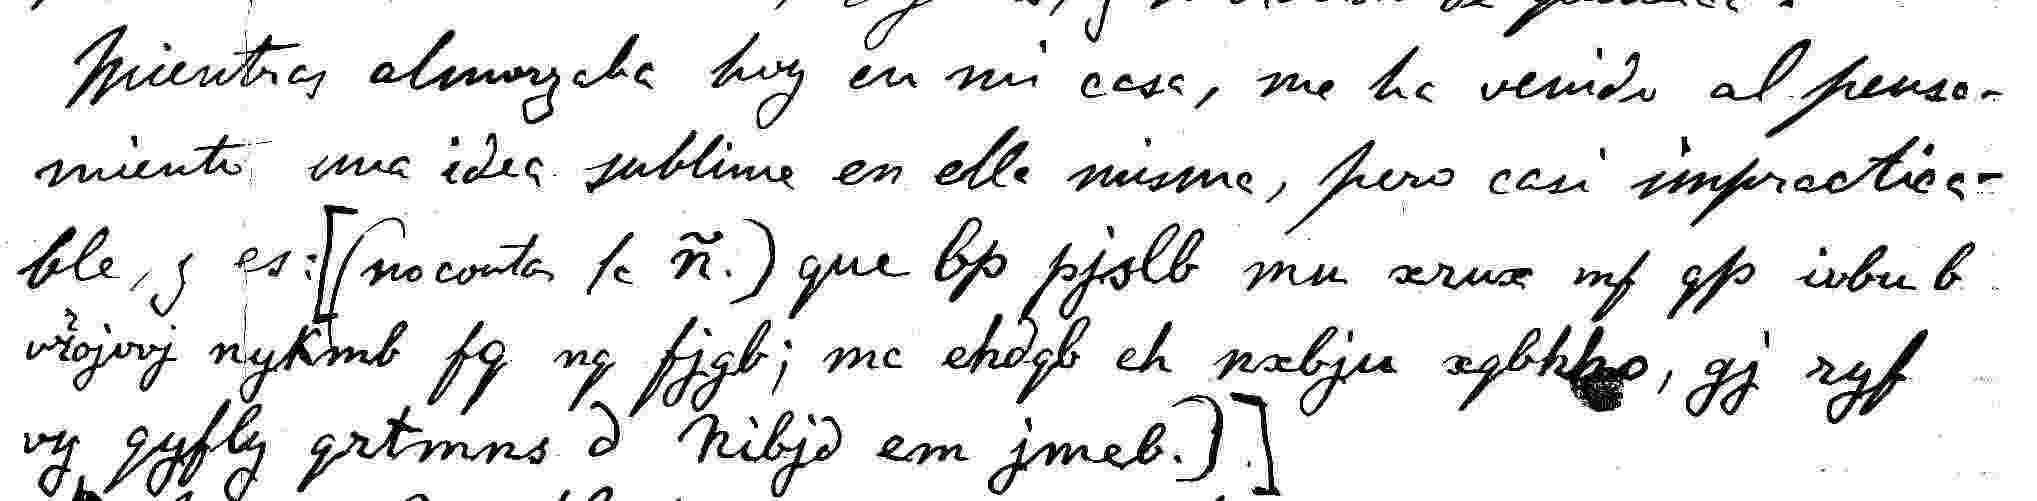 Mientras almorzaba hoy en mi casa, me ha venido al pensa-
miento una idea sublime en ella misma, pero casi impractica-
ble, y es: [(no contar la ñ.) que bp pjslb mu xrux mf qp ivbu b
nykmb fq nq fjgb; mc ehdqb eh nxbju, gj ryf
vy qyfly qrtmns d nibjd em jmeb.)]